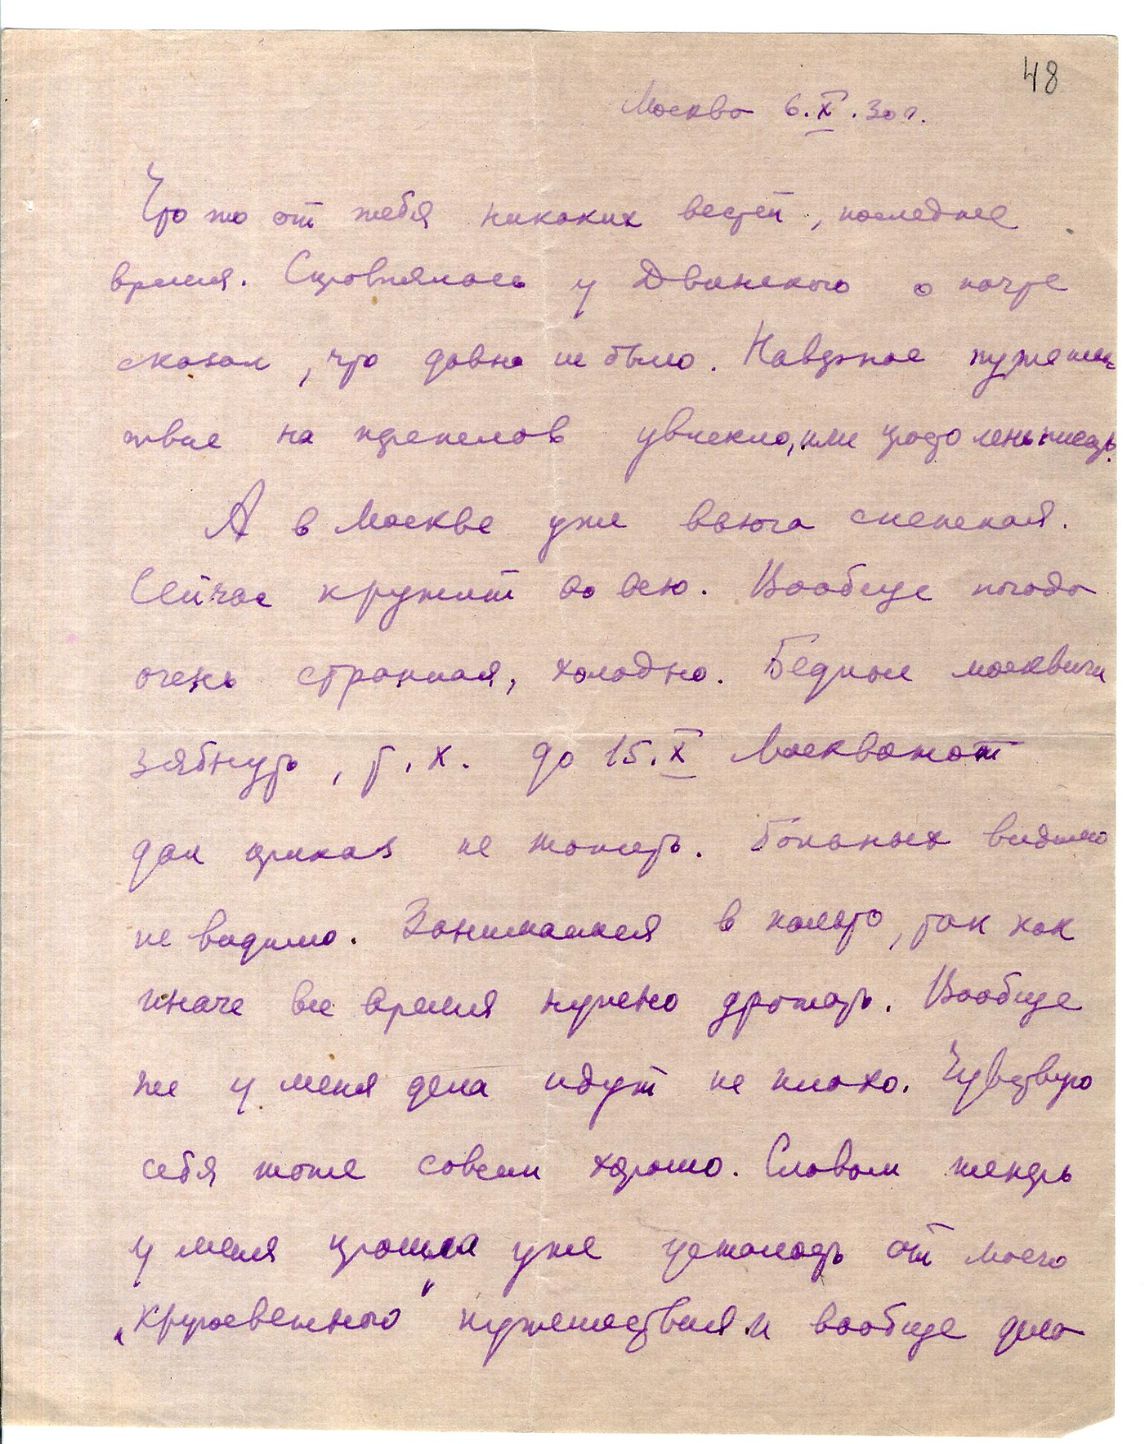 48
Москва 6.X.30 г.
Что то от тебя никаких вестей, последнее
время. Справлялась у Двинского о почте
сказал, что давно не было. Наверное путешес-
твие на перепелов увлекло, или просто лень писать.
А в Москве уже вьюга снежная.
Сейчас кружит во всю. Вообще погода
очень странная, холодно. Бедные москвичи
зябнут, т. к. до 15.X Москваотоп
дал приказ не топить. Больных видимо
не видимо. Занимаемся в пальто, так как
иначе все время нужно дрожать. Вообще
же у меня дела идут не плохо. Чувствую
себя тоже совсем хорошо. Словом теперь
у меня прошла уже усталость от моего
„кружевенного" путешествия и вообще дела